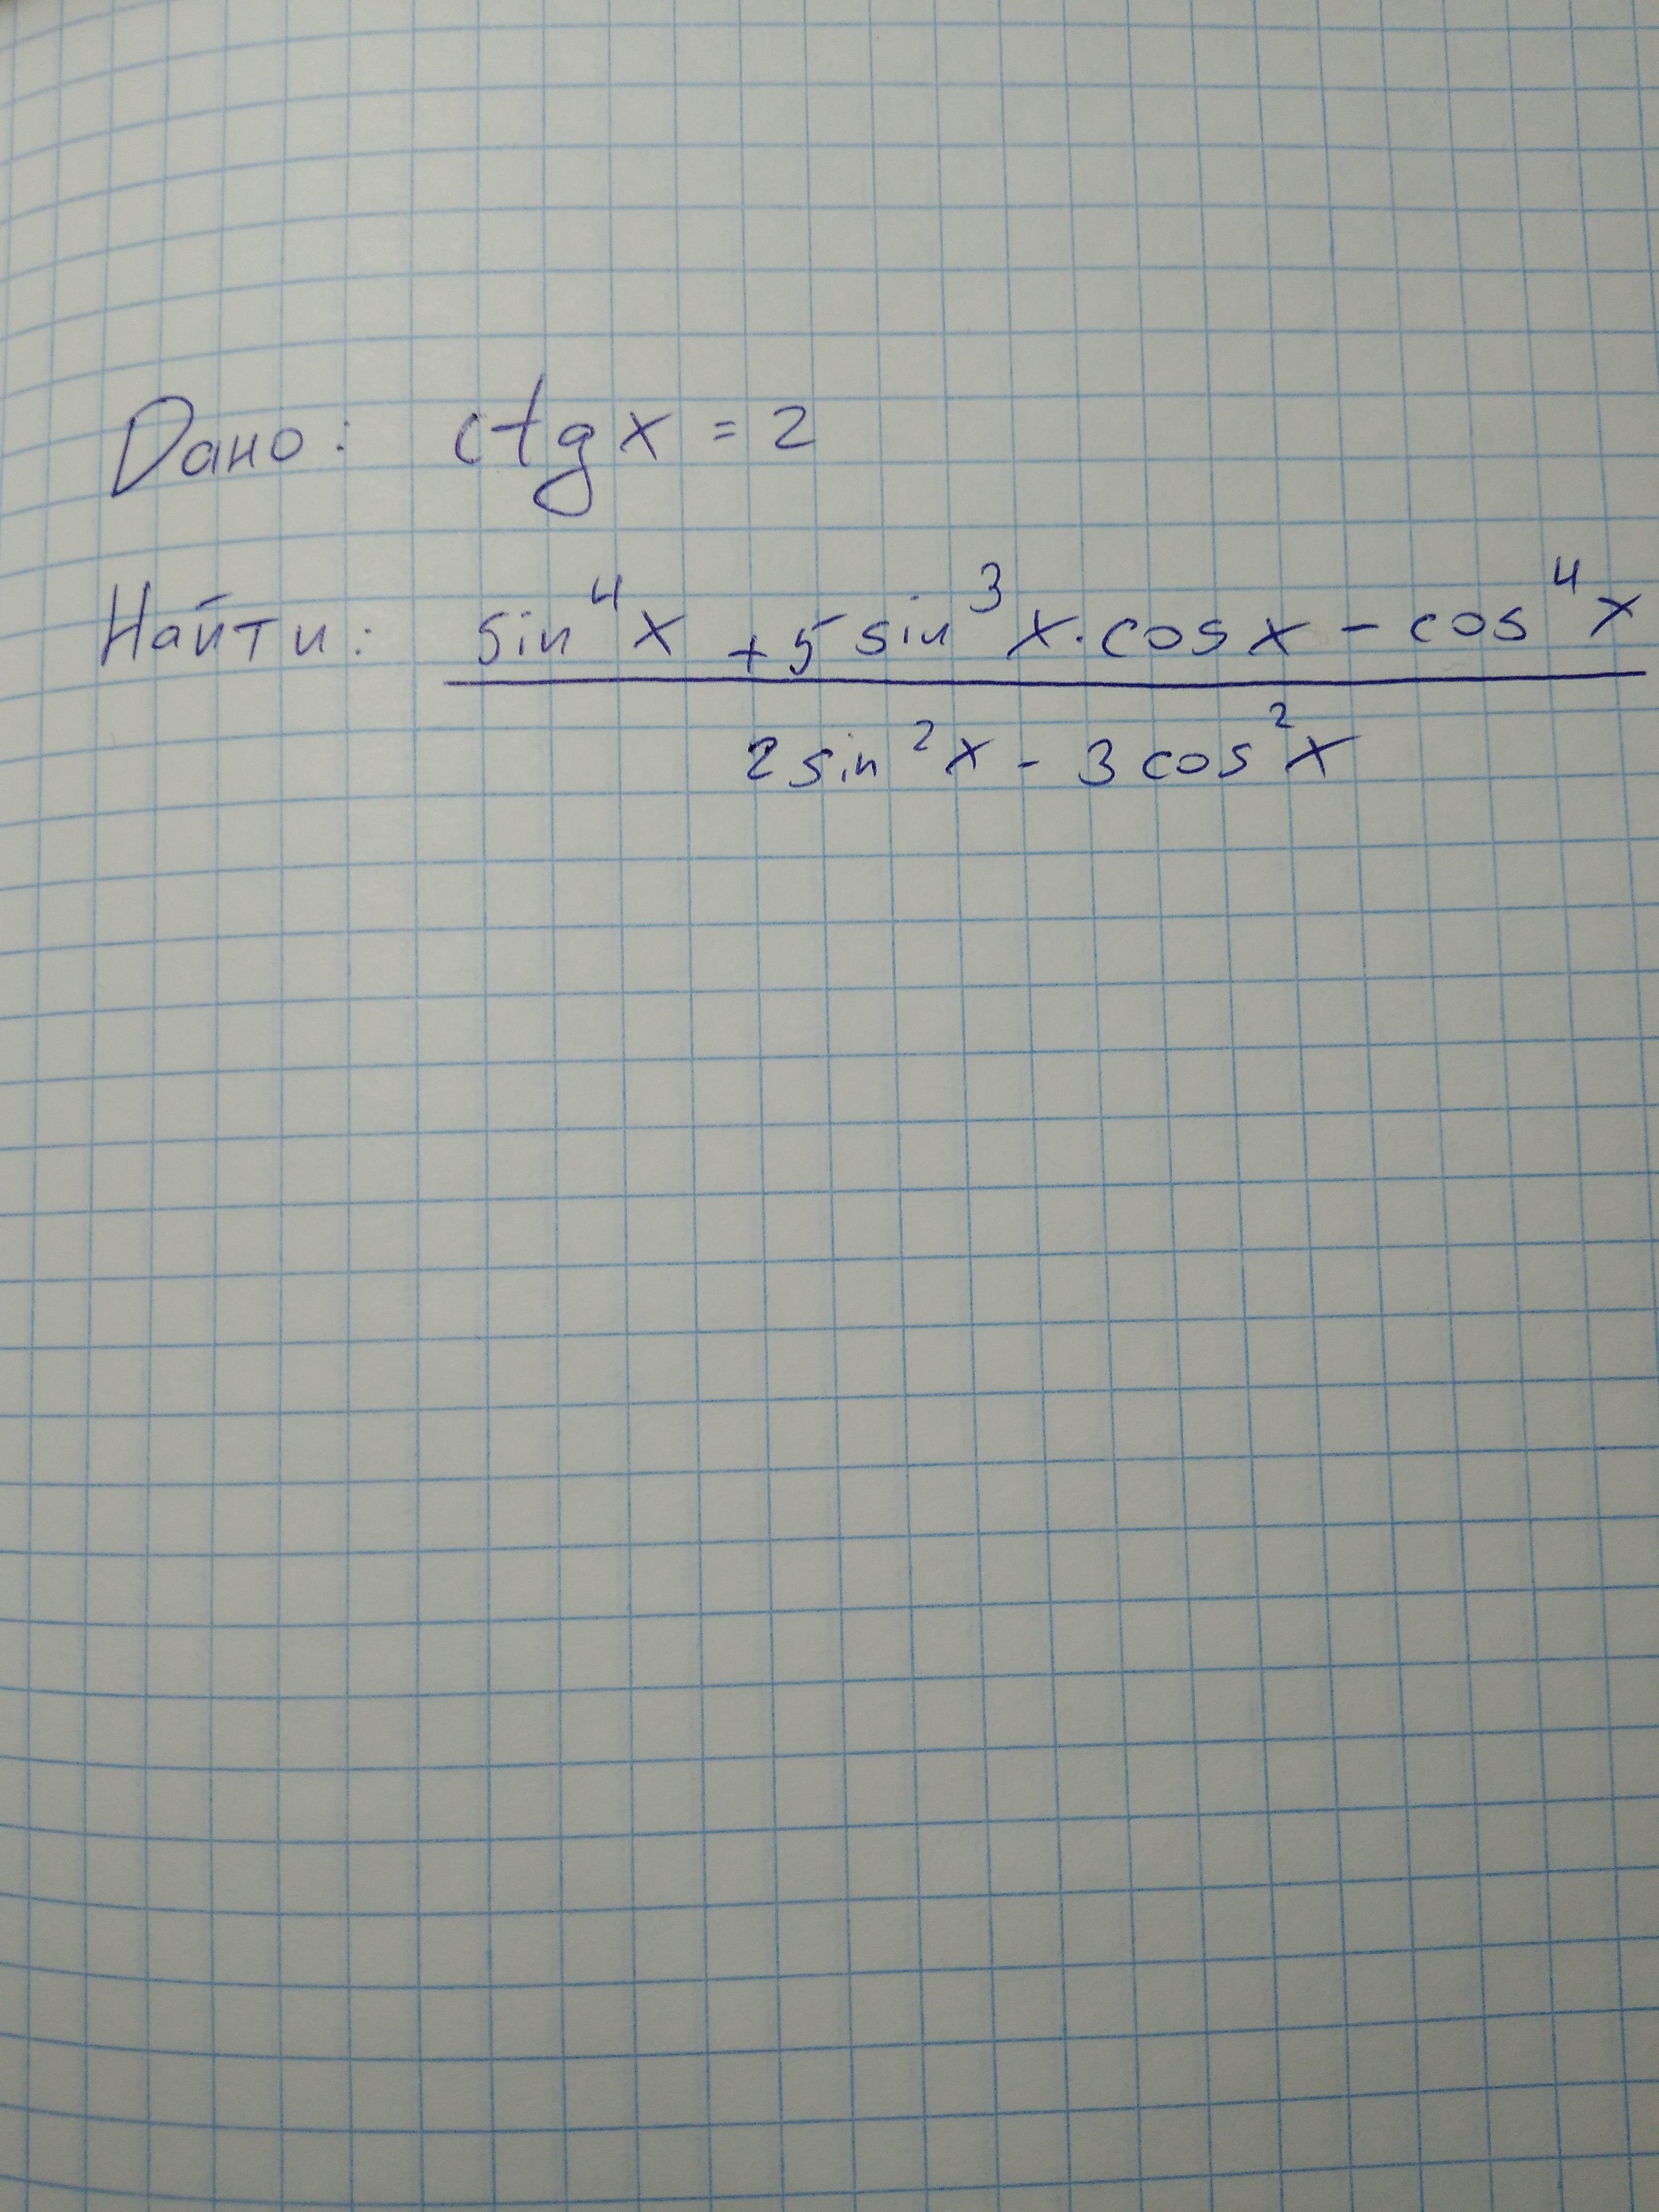 Дано: ctg x = 2
Найти: sin⁴x + 5 sin³x · cos x - cos⁴x
2 sin²x - 3 cos²x